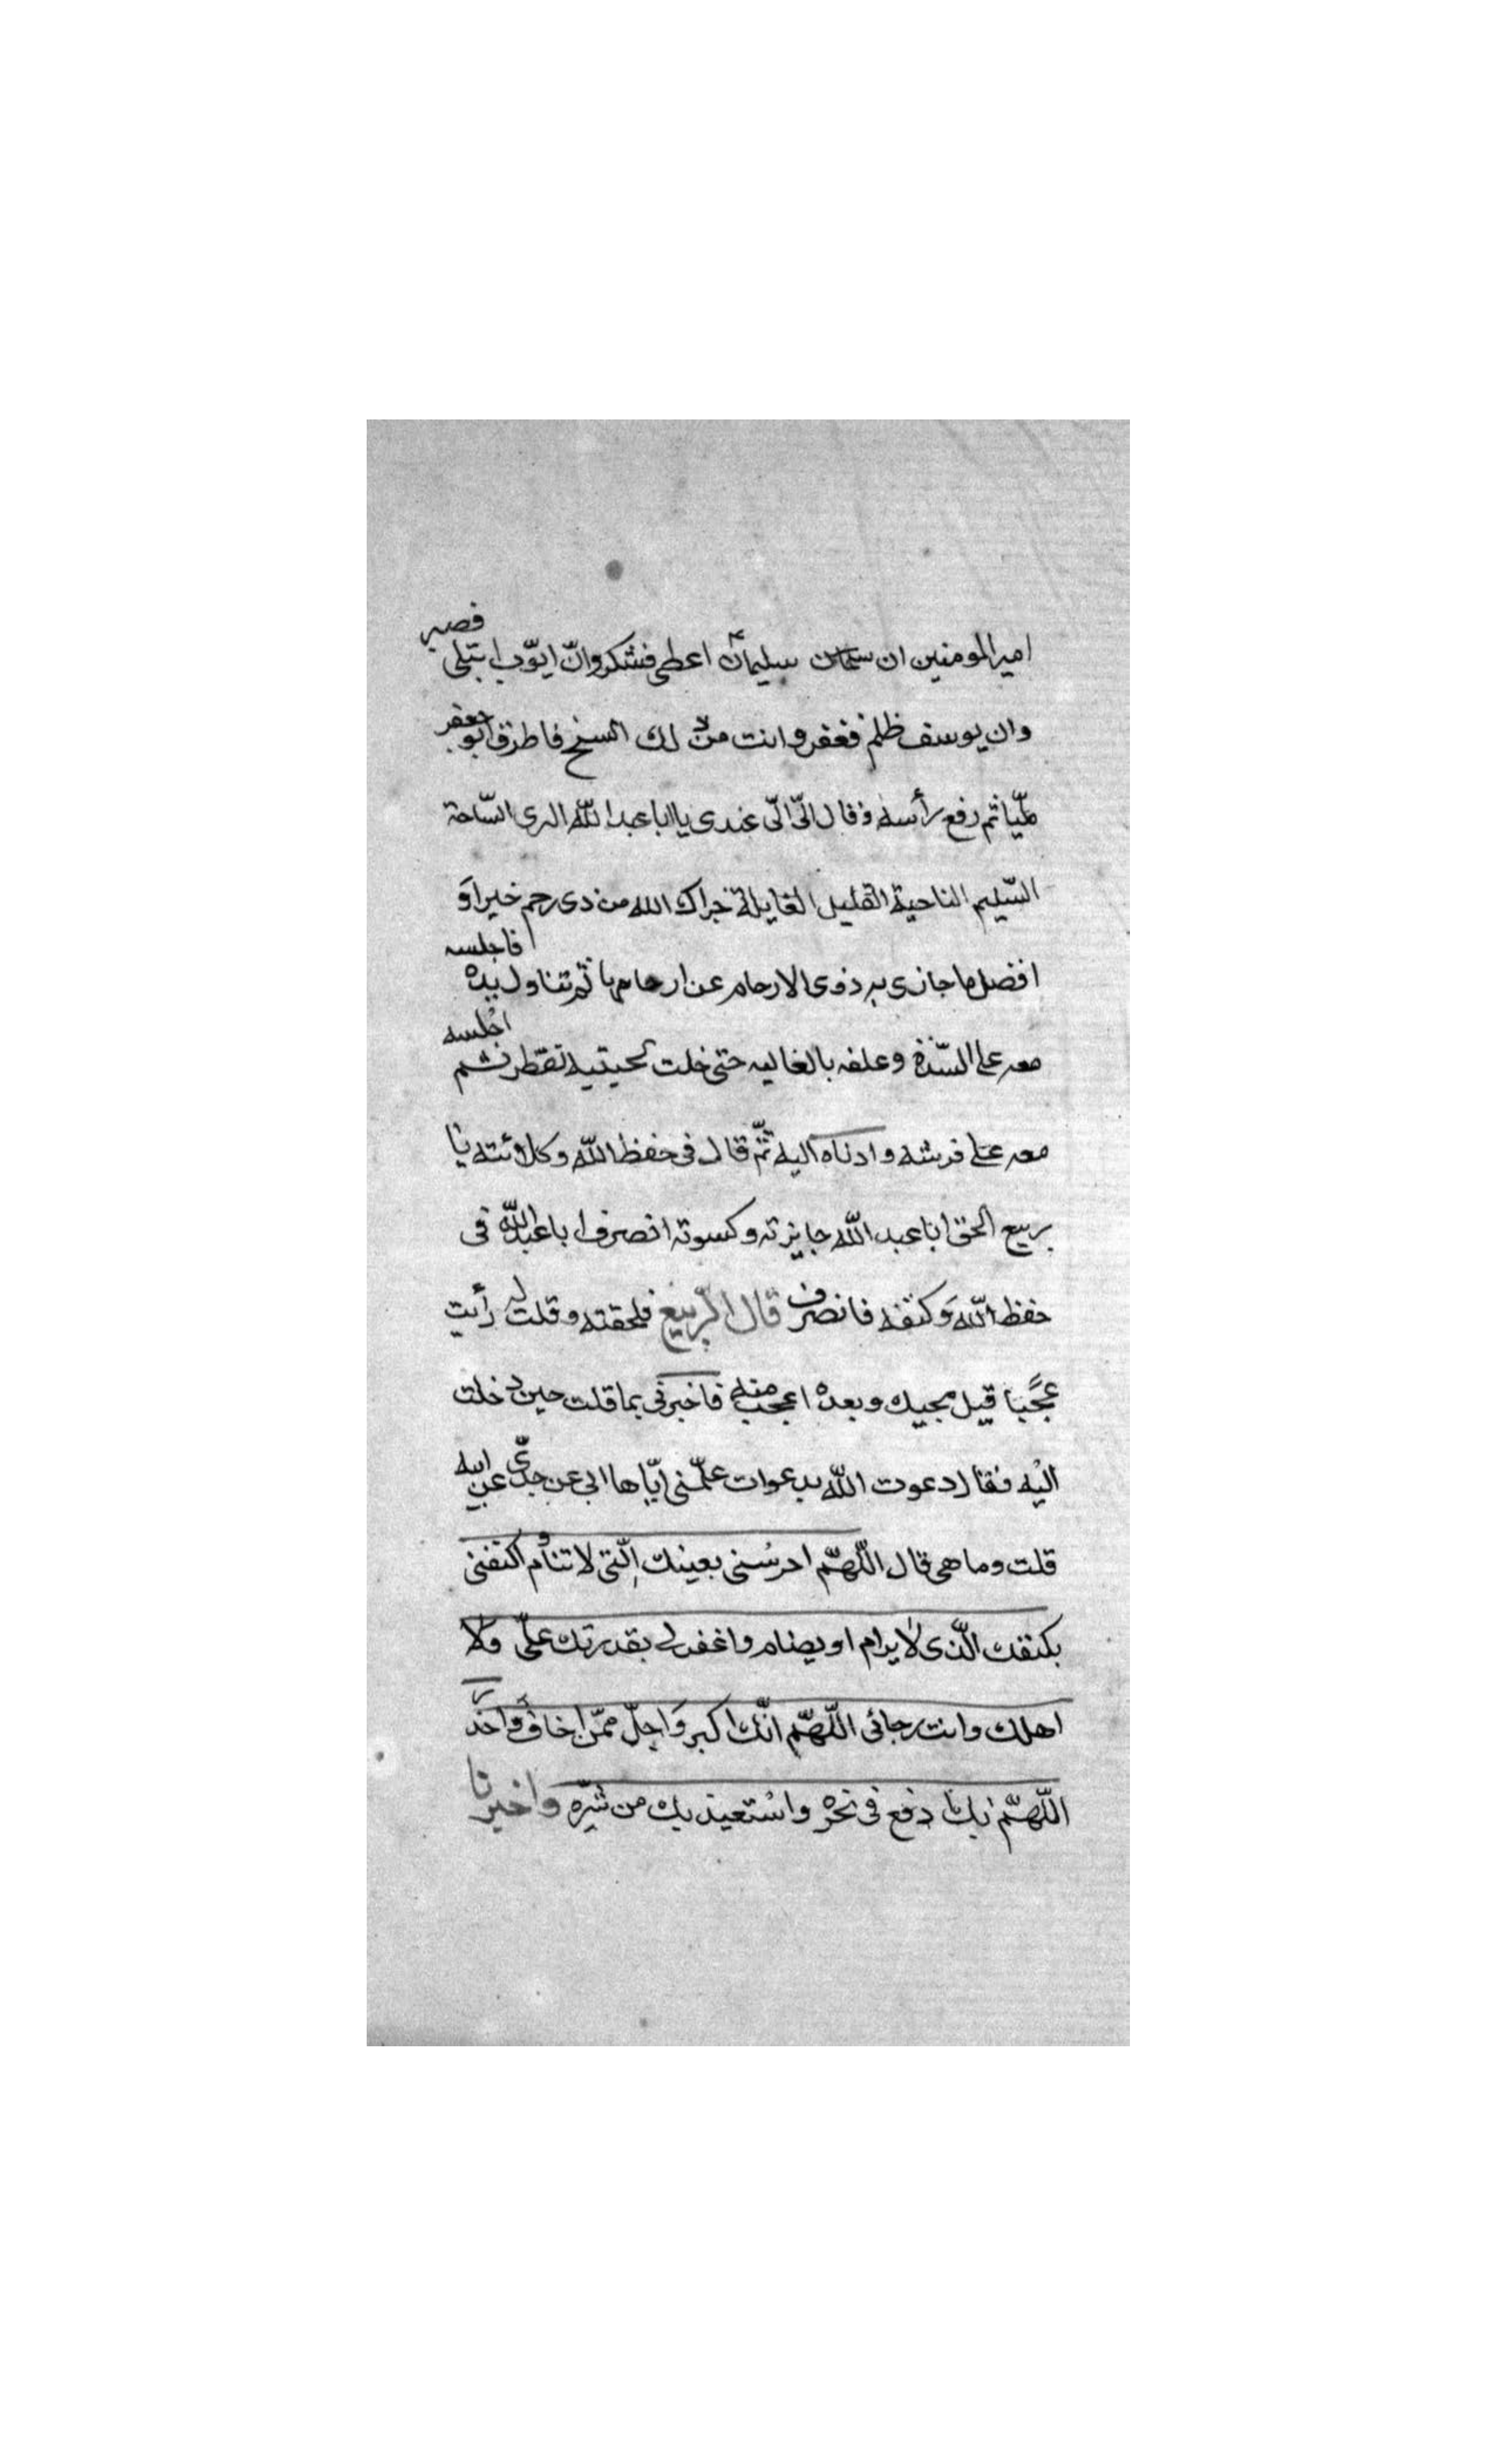 امير المومنين ان سليمان اعطى فشكر وانّ ايّوب ابتلى فصبر
وان يوسف ظلم فغفر وانت من ذلك السنخ فاطرق ابو جعفر
مليّا ثم رفع رأسه وقال الىّ الىّ عندى يا ابا عبد الله البرى السّاحة
السّليم الناحية القليل الغايلة جزاك الله من ذى رحم خيرا و
افضل ما جازى به ذوى الارحام عن ارحامها ثم تناول يده فاجلسه
معه على السّدّة وعلفه بالغاليه حتى خلت لحيتيه تقطر ثم اجلسه
معه على فرشه وادناه اليه ثمّ قال فى حفظ الله وكلائته يا
ربيع الحق ابا عبد الله جايزته وكسوته انصرف ابا عبد الله فى
حفظ الله وكنفه فانصرف قال الرّبيع فلحقته وقلت له رأيت
عجبًا قبل مجيك وبعده اعجب منه فاخبرنى بما قلت حين دخلت
اليه فقال دعوت الله بدعوات علّمنى ايّاها ابى عن جدّى عن ابيه
قلت وما هى قال اللّهمّ احرسنى بعينك الّتى لا تنام اكنفنى
بكنفك الّذى لا يرام او يضام واغفر لى بقدرتك علىّ ولا
اهلك وانت رجائى اللّهمّ انّك اكبر واجلّ ممّن اخاف واحذر
اللّهمّ بك ادفع فى نحره واستعيذ بك من شرّه واخبرنا